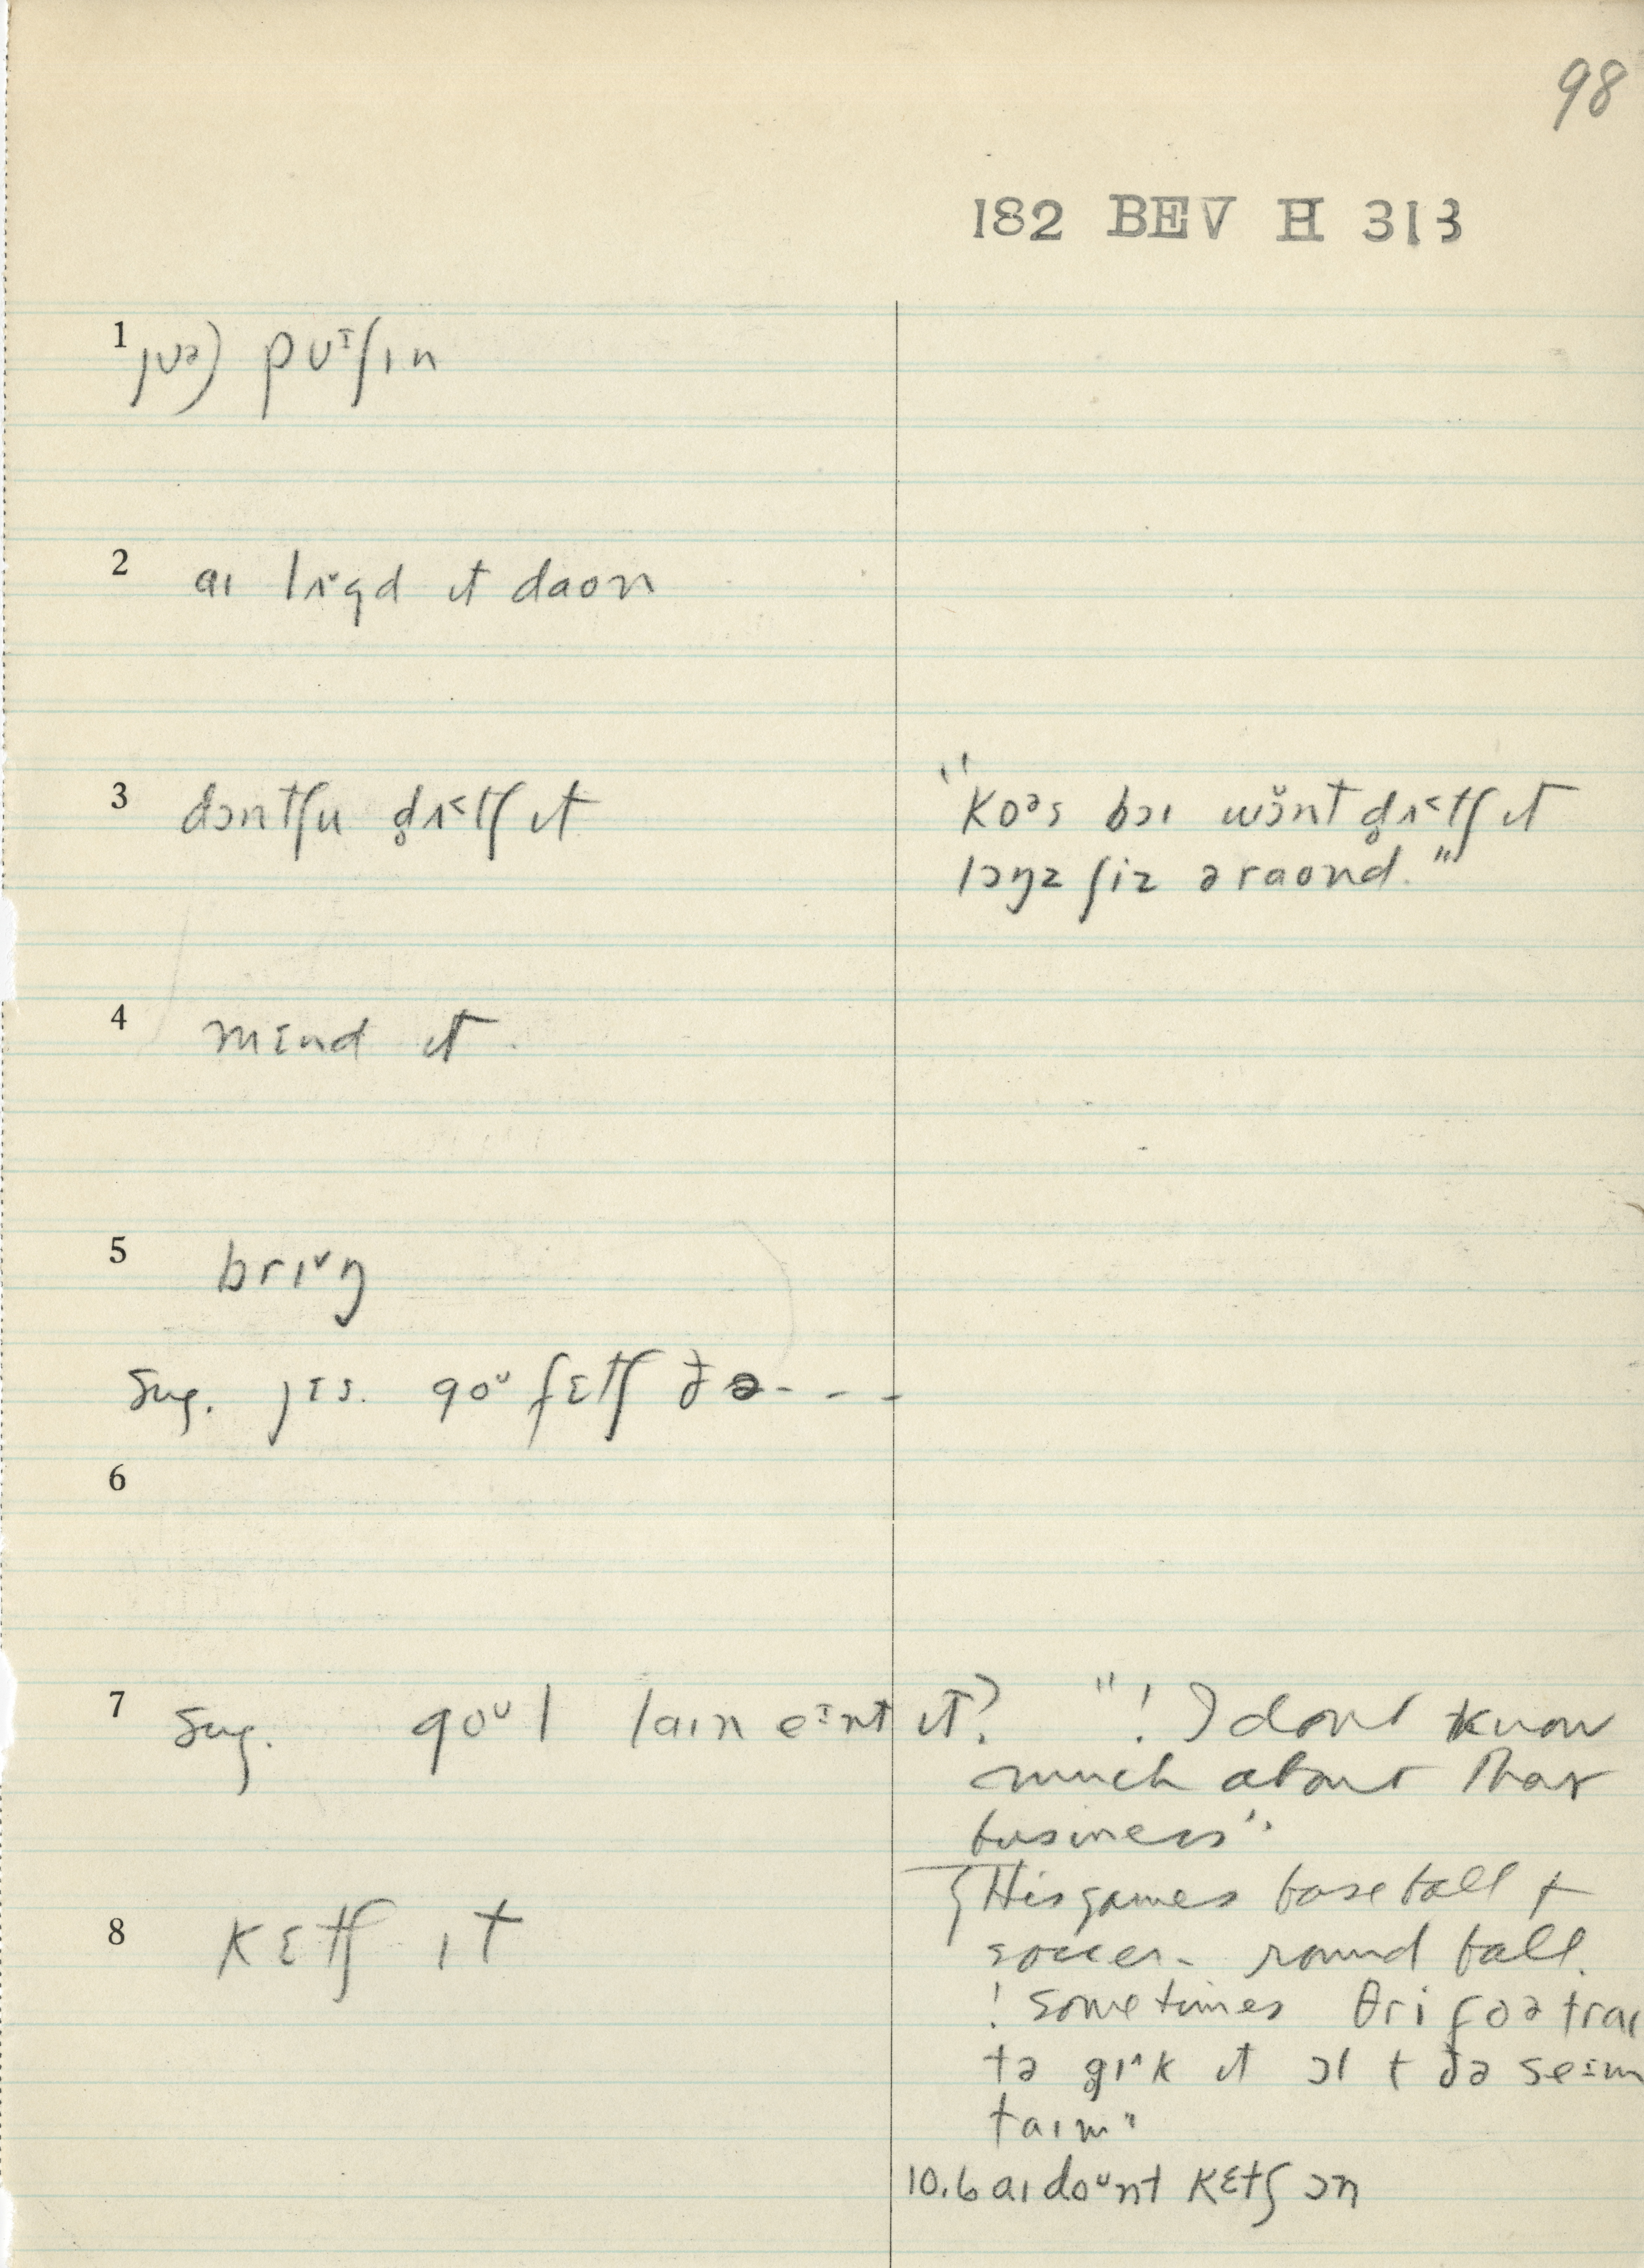 98
182 BEV H 313
1 jʊə) pʊᶦʃɪn
2 aɪ lɪ˅gd ɪt daon
3 dɔntʃu d̥ʌ˂tʃ ɪt
"koᵊs bɔɪ wɔ̆nt d̥ʌ˂tʃ ɪt
lɔŋz ʃiz əraond."
4 mɛnd ɪt
5 brɪ˅ŋ
Sug. jɛs. goᶷ fɛtʃ ðə- - - -
6
7 Sug. goᶷl laɪn eᶦnt ɪt? "! I dont know
much about that
business"
8 kɛtʃ ɪt
{ His games baseball +
soccer - round ball.
! sometimes θri foə traɪ
tə gɪ˄k ɪt ɔl t ðə seɪm
taɪm"
10.6 aɪ doᶷnt kɛtʃ ɔn